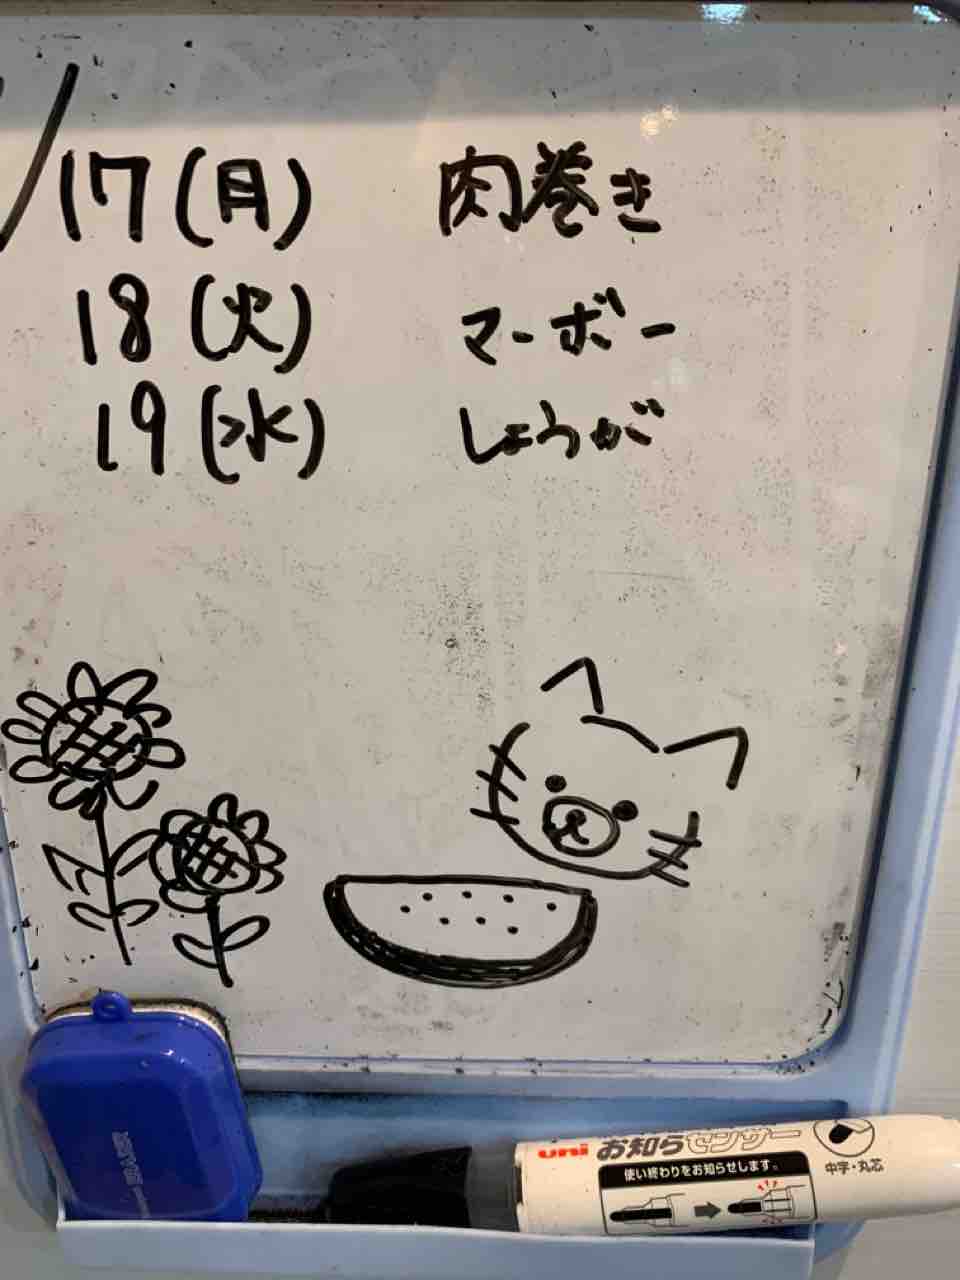 /17(月) 肉巻き
18(火) マーボー
19(水) しょうが
uni お知らセンサー
使い終わりをお知らせします。
中字・丸芯